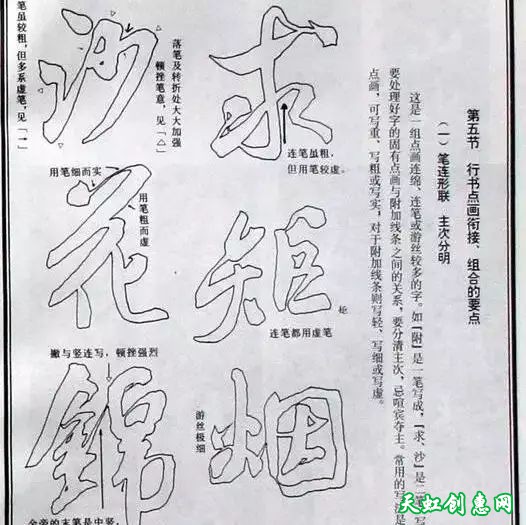 第五节 行书点画衔接、组合的要点
(一) 笔连形联 主次分明
这是一组点画连绵、连笔或游丝较多的字。如【附】是一笔写成,【求、沙】是二笔写
要处理好字的固有点画与附加线条之间的关系,要分清主次,忌喧宾夺主。常用的写法是
点画,可写重、写粗或写实,对于附加线条则写轻、写细或写虚。
求
连笔虽粗,
但用笔较虚。
矩
连笔都用虚笔
烟
游丝极细
沙
落笔及转折处大大加强
顿挫笔意,见「△」
笔虽较粗,但多系虚笔,见「→」
花
用笔细而实
用笔粗而虚
撇与竖连写,顿挫强烈
锦
金旁的末笔是中竖,
天虹创意网